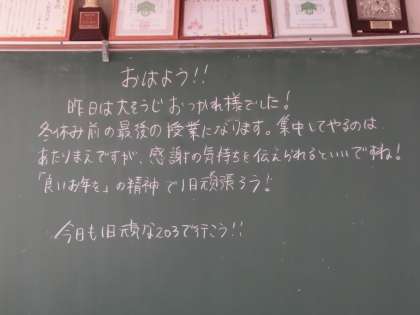 おはよう!!
昨日は大そうじおつかれ様でした!
冬休み前の最後の授業になります。集中してやるのは
あたりまえですが、感謝の気持ちを伝えられるといいですね!
「良いお年を」の精神で1日頑張ろう!
今日も1日元気な203で行こう!!